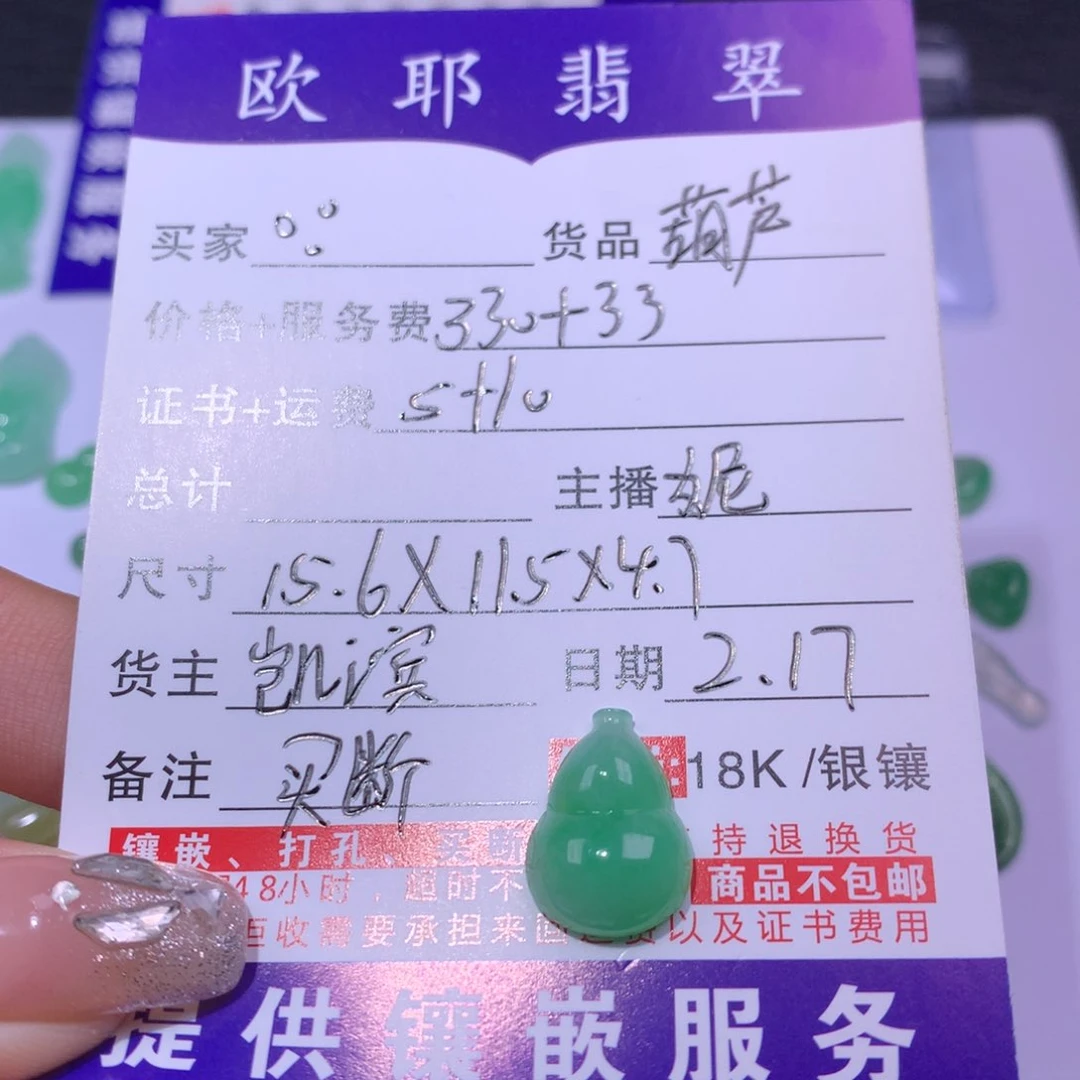 欧耶翡翠
买家 货品 葫芦
价格+服务费 330+33
证书+运费 5+10
总计 主播 妮
尺寸 15.6X11.5X4.7
货主 凯滨 日期 2.17
备注 买断 18K/银镶
镶嵌、打孔、买断 持退换货
48小时，超时不 商品不包邮
拒收需要承担来回运费以及证书费用
提供镶嵌服务